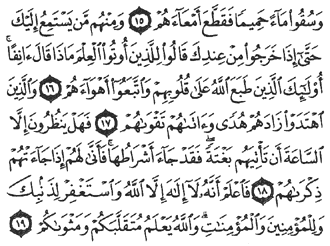 وَسُقُوا۟ مَآءً حَمِيمًا فَقَطَّعَ أَمْعَآءَهُمْ ١٥ وَمِنْهُم مَّن يَسْتَمِعُ إِلَيْكَ
حَتَّىٰٓ إِذَا خَرَجُوا۟ مِنْ عِندِكَ قَالُوا۟ لِلَّذِينَ أُوتُوا۟ ٱلْعِلْمَ مَاذَا قَالَ ءَانِفًا ۚ
أُو۟لَٰٓئِكَ ٱلَّذِينَ طَبَعَ ٱللَّهُ عَلَىٰ قُلُوبِهِمْ وَٱتَّبَعُوٓا۟ أَهْوَآءَهُمْ ١٦ وَٱلَّذِينَ
ٱهْتَدَوْا۟ زَادَهُمْ هُدًى وَءَاتَىٰهُمْ تَقْوَىٰهُمْ ١٧ فَهَلْ يَنظُرُونَ إِلَّا
ٱلسَّاعَةَ أَن تَأْتِيَهُم بَغْتَةً ۖ فَقَدْ جَآءَ أَشْرَاطُهَا ۚ فَأَنَّىٰ لَهُمْ إِذَا جَآءَتْهُمْ
ذِكْرَىٰهُمْ ١٨ فَٱعْلَمْ أَنَّهُۥ لَآ إِلَٰهَ إِلَّا ٱللَّهُ وَٱسْتَغْفِرْ لِذَنۢبِكَ
وَلِلْمُؤْمِنِينَ وَٱلْمُؤْمِنَٰتِ ۗ وَٱللَّهُ يَعْلَمُ مُتَقَلَّبَكُمْ وَمَثْوَىٰكُمْ ١٩